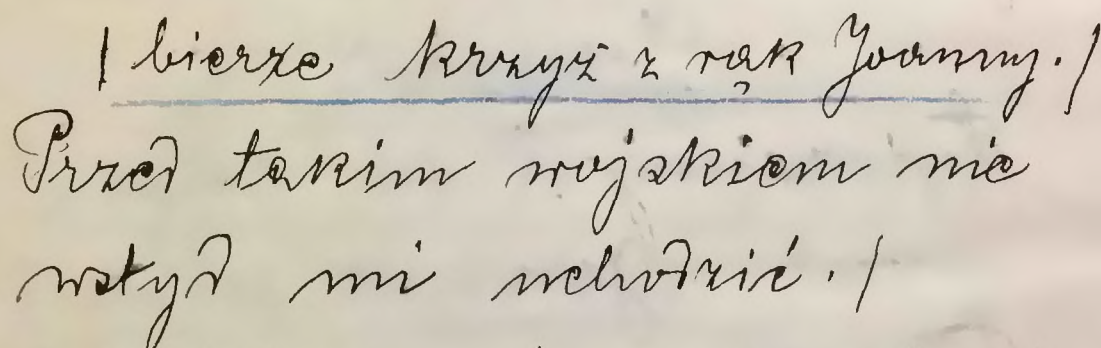 / bierze krzyż z rąk Joanny. /
Przed takim wojskiem nie
wstyd mi uchodzić. /